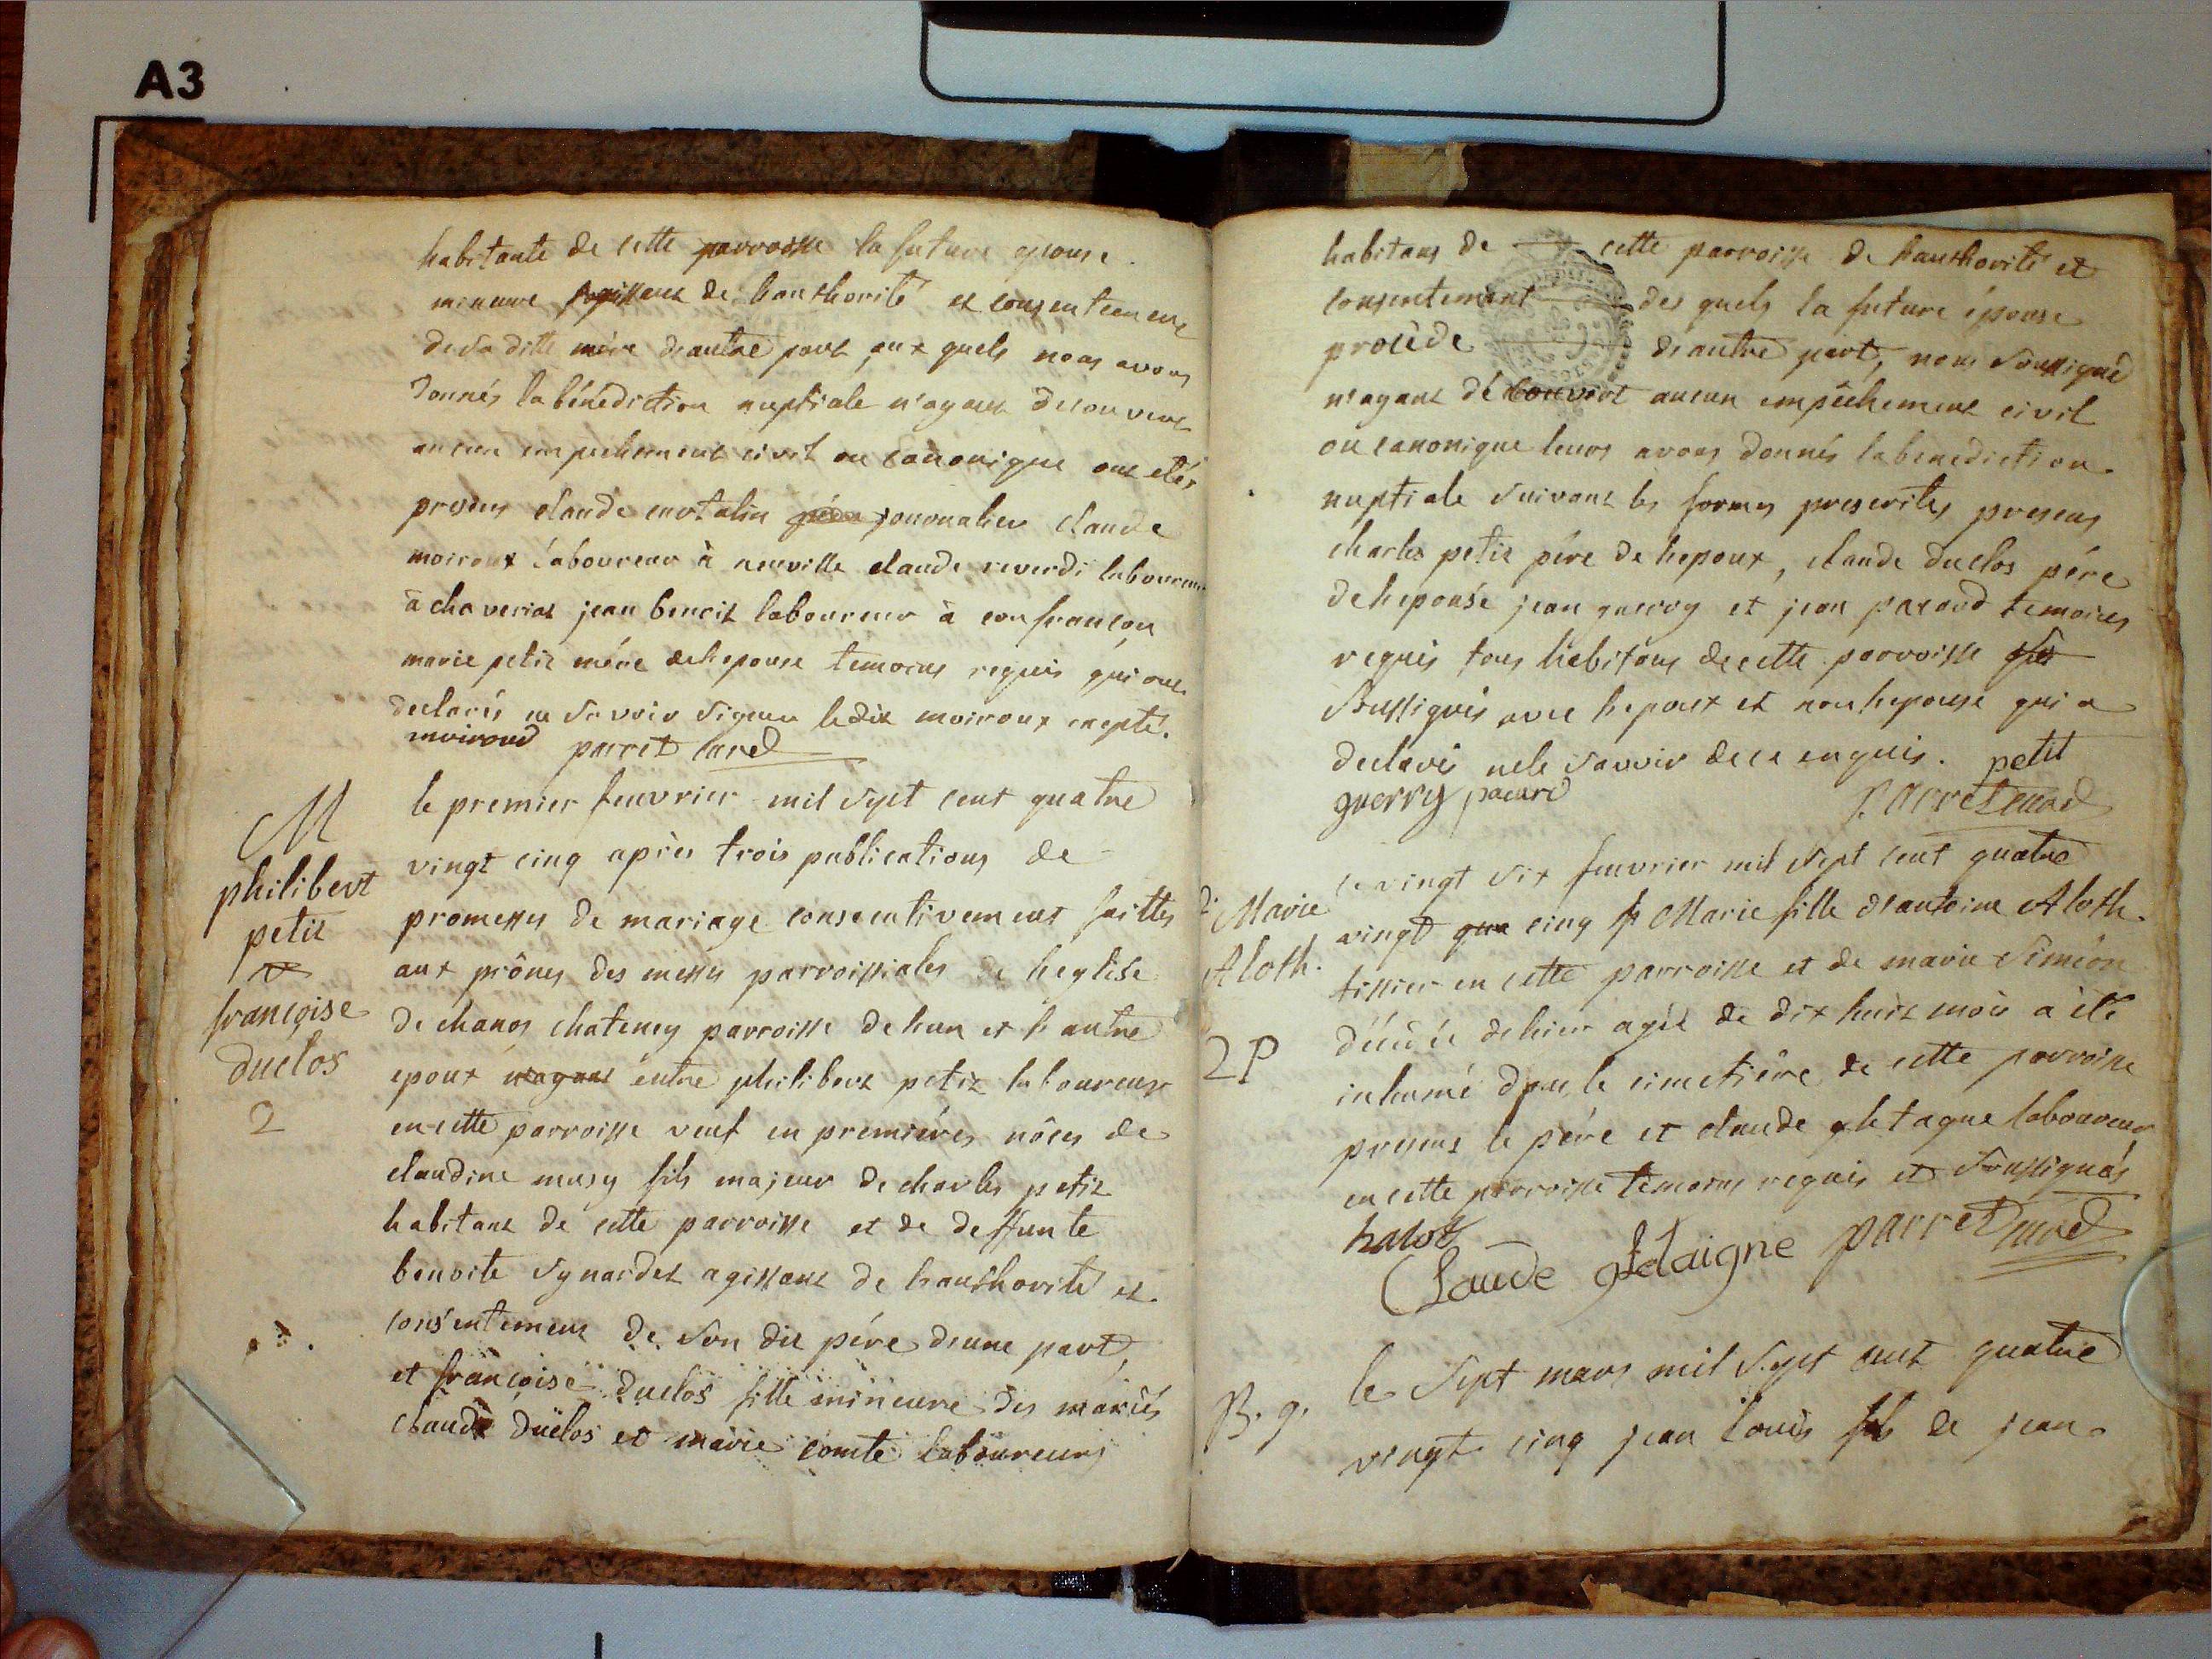 A3
habitante de cette parroisse la future epouse
mineure agissant de l'authorité et consentement
de sa ditte mère d'autre part, aux quels nous avons
donnés la bénédiction nuptiale n'ayant decouvert
aucun empechement civil ou canonique ont etés
presens claude journalier claude
moiroux laboureur à neuville claude reverdi laboureur
à chaveriat jean benoit laboureur à confrançon
marie petit mére de l'epouse temoins requis qui ont
declarés ne savoir signer le dit moiroux excepté.
moiroud parret curé
M
philibert
petit
et
françoise
duclos
2
le premier feuvrier mil sept cent quatre
vingt cinq après trois publications de
promesses de mariage consecutivement faittes
aux prônes des messes parroissiales de l'eglise
de chanoz chatenay parroisse de l'un et l'autre
epoux n'ayant entre philibert petit laboureur
en cette parroisse veuf en premiéres nôces de
claudine musy fils majeur de charles petit
habitant de cette parroisse et de deffunte
benoite agissant de l'authorité et
consentement de son dit pére d'une part,
et françoise duclos fille mineure des mariés
claude duclos et marie comte laboureurs
habitans de cette parroisse de l'authorité et
consentement des quels la future épouse
procède d'autre part, nous soussigné
n'ayant découvert aucun empêchement civil
ou canonique leurs avons donnés la benediction
nuptiale suivant les formes prescrites presens
charles petit pére de l'epoux, claude duclos pére
de l'epouse jean guerry et jean pacard temoins
requis tous habitans de cette parroisse
soussignés avec l'epoux et non l'epouse qui a
declaré ne le savoir de ce enquis. petit
guerry pacard parret curé
Marie
Aloth.
2 P
le vingt six feuvrier mil sept cent quatre
vingt qua cinq Marie fille d'antoine Aloth
tissier en cette parroisse et de marie Siméon
décédée d'hier agée de dix huit mois a été
inhumé dans le cimetière de cette parroisse
presens le pére et claude gletagne laboureur
en cette parroisse temoins requis et soussignés
halot
Claude gletaigne parret curé
B. g.
le sept mars mil sept cent quatre
vingt cinq jean louis fils de jean